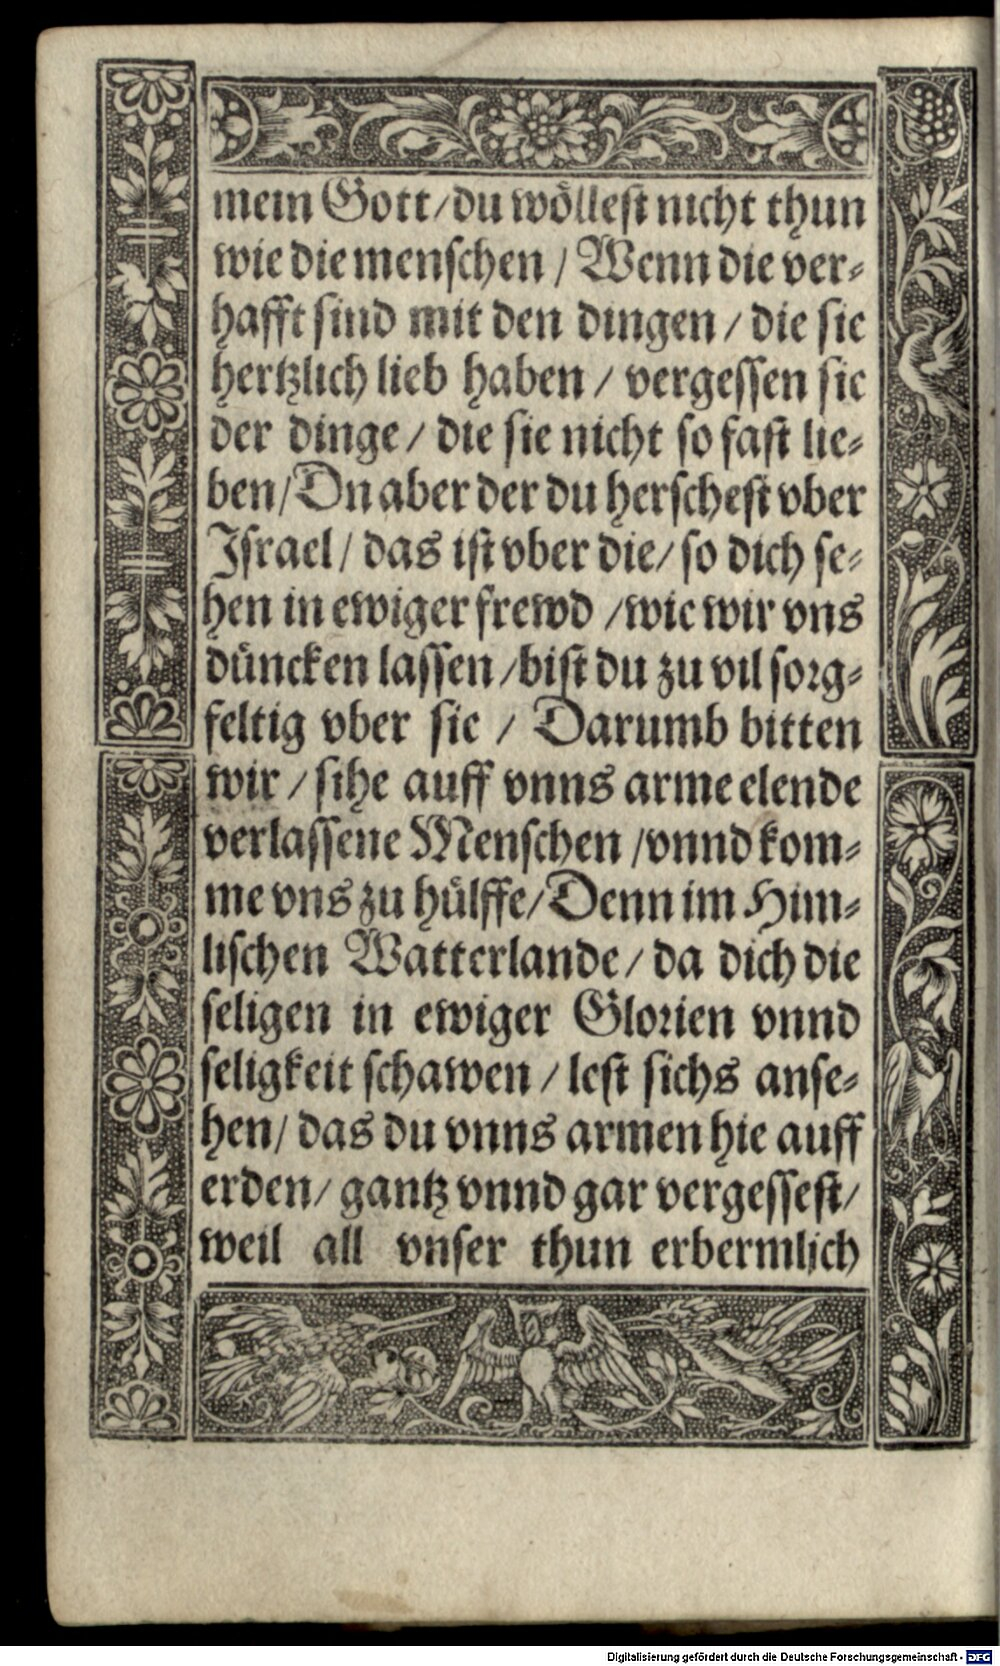 mein Gott/du wöllest nicht thun
wie die menschen / Wenn die ver⸗
hafft sind mit den dingen / die sie
hertzlich lieb haben / vergessen sie
der dinge / die sie nicht so fast lie⸗
ben/Dn aber der du herschest vber
Israel / das ist vber die/ so dich se⸗
hen in ewiger frewd /wie wir vns
düncken lassen /bist du zu vil sorg⸗
feltig vber sie / Darumb bitten
wir / sihe auff vnns arme elende
verlassene Menschen /vnnd kom⸗
me vns zu hülffe/Denn im Him⸗
lischen Watterlande/ da dich die
seligen in ewiger Glorien vnnd
seligkeit schawen / lest sichs anse⸗
hen/ das du vnns armen hie auff
erden/ gantz vnnd gar vergessest/
weil all vnser thun erbermlich
Digitalisierung gefördert durch die Deutsche Forschungsgemeinschaft - DFG